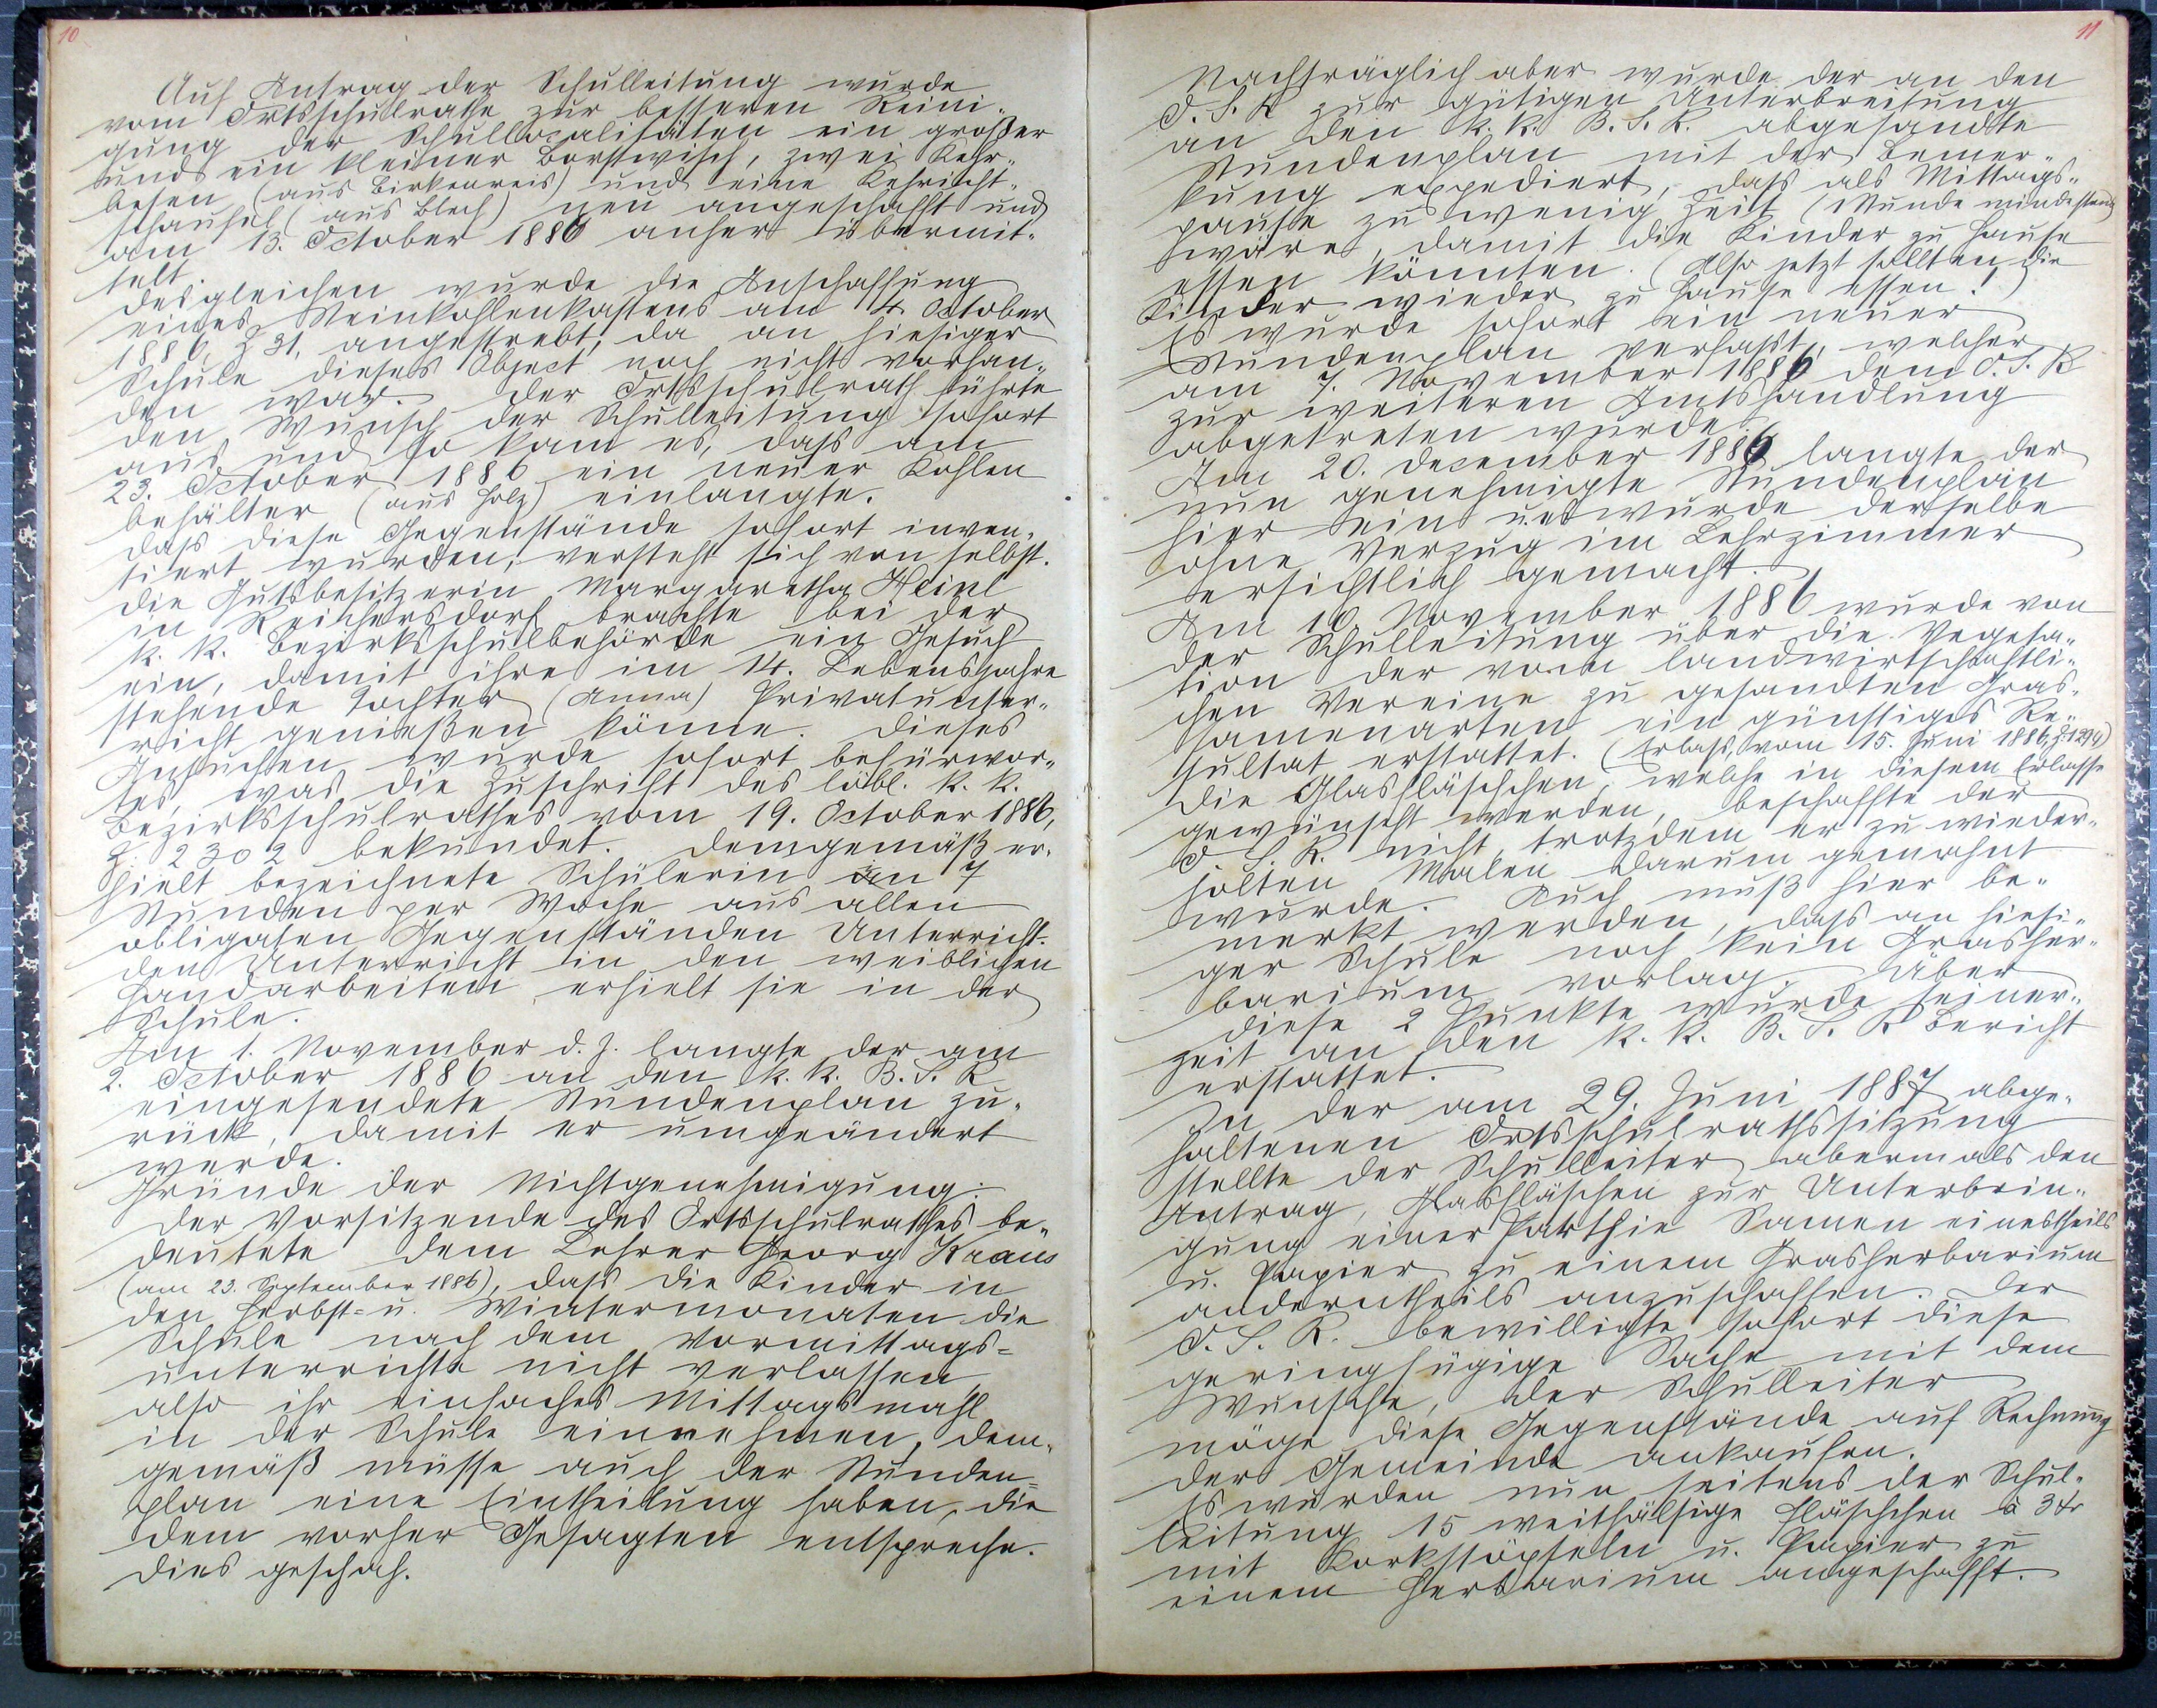 10
Auf Antrag der Schulleitung wurde
vom Ortsschulrathe zur besseren Reini-
gung der Schullocalitäten ein großer
und ein kleiner Borstwisch, zwei Kehr-
besen (aus Birkenreis) und eine Kehricht-
schaufel (aus Blech) neu angeschafft und
am 13. October 1886 anher übermit-
telt.
Desgleichen wurde die Anschaffung
eines Steinkohlenkastens am 4. October
1886, Z 31, angestrebt, da an hiesiger
Schule dieses Object noch nicht vorhan-
den war. Der Ortsschulrath führte
den Wunsch der Schulleitung sofort
aus und so kam es, dass am
23. October 1886 ein neuer Kohlen
behälter (aus Holz) einlangte.
Dass diese Gegenstände sofort inven-
tiert wurden, versteht sich von selbst.
Die Gutsbesitzerin Margaretha Heinl
in Reichersdorf brachte bei der
k. k. Bezirksschulbehörde ein Gesuch
ein, damit ihre im 14. Lebensjahre
stehende Tochter (Anna) Privatunter-
richt genießen könne. Dieses
Ansuchen wurde sofort befürwor-
tet, was die Zuschrift des löbl. k. k.
Bezirksschulrathes vom 19. October 1886,
Z. 2302 bekundet. Demgemäß er-
hielt bezeichnete Schülerin in 7
Stunden per Woche aus allen
obligaten Gegenständen Unterricht.
Den Unterricht in den weiblichen
Handarbeiten erhielt sie in der
Schule.
Am 1. November d. J. langte der am
2. October 1886 an den k. k. B. S. R
eingesendete Stundenplan zu-
rück, damit er umgeändert
werde.
Gründe der Nichtgenehmigung:
Der Vorsitzende des Ortsschulrathes be-
deutete dem Lehrer Georg Kraus
(am 23. September 1886), dass die Kinder in
den Herbst- u. Wintermonaten die
Schule nach dem Vormittags-
unterrichte nicht verlassen,
also ihr einfaches Mittagsmahl
in der Schule einnehmen, dem-
gemäß müsse auch der Stunden-
plan eine Eintheilung haben, die
dem vorher Gesagten entspreche.
Dies geschah.
11
Nachträglich aber wurde der an den
O. S. R zur gütigen Unterbreitung
an den k. k. B. S. R. abgesandte
Stundenplan mit der Bemer-
kung expediert, dass als Mittags-
pause zu wenig Zeit (1 Stunde mindestens)
wäre, damit die Kinder zu Hause
essen könnten. (Also jetzt sollten die
Kinder wieder zu Hause essen!)
Es wurde sofort ein neuer
Stundenplan verfasst, welcher
am 7. November 1886 dem O. S. R
zur weiteren Amtshandlung
abgetreten wurde.
Am 20. December 1886 langte der
nun genehmigte Stundenplan
hier ein und wurde derselbe
ohne Verzug im Lehrzimmer
ersichtlich gemacht.
Am 16. November 1886 wurde von
der Schulleitung über die Vegeta-
tion der vom landwirtschaftli-
chen Vereine zu gesandten Gras-
samenarten ein günstiges Re-
sultat erstattet. (Erlass vom 15. Juni 1886, Z 1294)
Die Glasfläschchen, welche in diesem Erlasse
gewünscht werden, beschaffte der
O. S. R. nicht, trotzdem er zu wieder-
holten Malen darum gemahnt
wurde. Auch muß hier be-
merkt werden, dass an hiesi-
ger Schule noch kein Grasher-
barium vorlag. Über
diese 2 Punkte wurde seiner-
zeit an den k. k. B. S. R Bericht
erstattet.
In der am 29. Juni 1887 abge-
haltenen Ortsschulrathssitzung
stellte der Schulleiter abermals den
Antrag, Glasfläschen zur Unterbrin-
gung einer Parthie Samen einestheils
u. Papier zu einem Grasherbarium
anderntheils anzuschaffen. Der
O. S. R. bewilligte sofort diese
geringfügige Sache mit dem
Wunsche, der Schulleiter
möge diese Gegenstände auf Rechnung
der Gemeinde ankaufen.
Es wurden nun seitens der Schul-
leitung 15 weithalsige Fläschchen à 3 kr
mit Korkstöpseln u. Papier zu
einem Herbarium angeschafft.